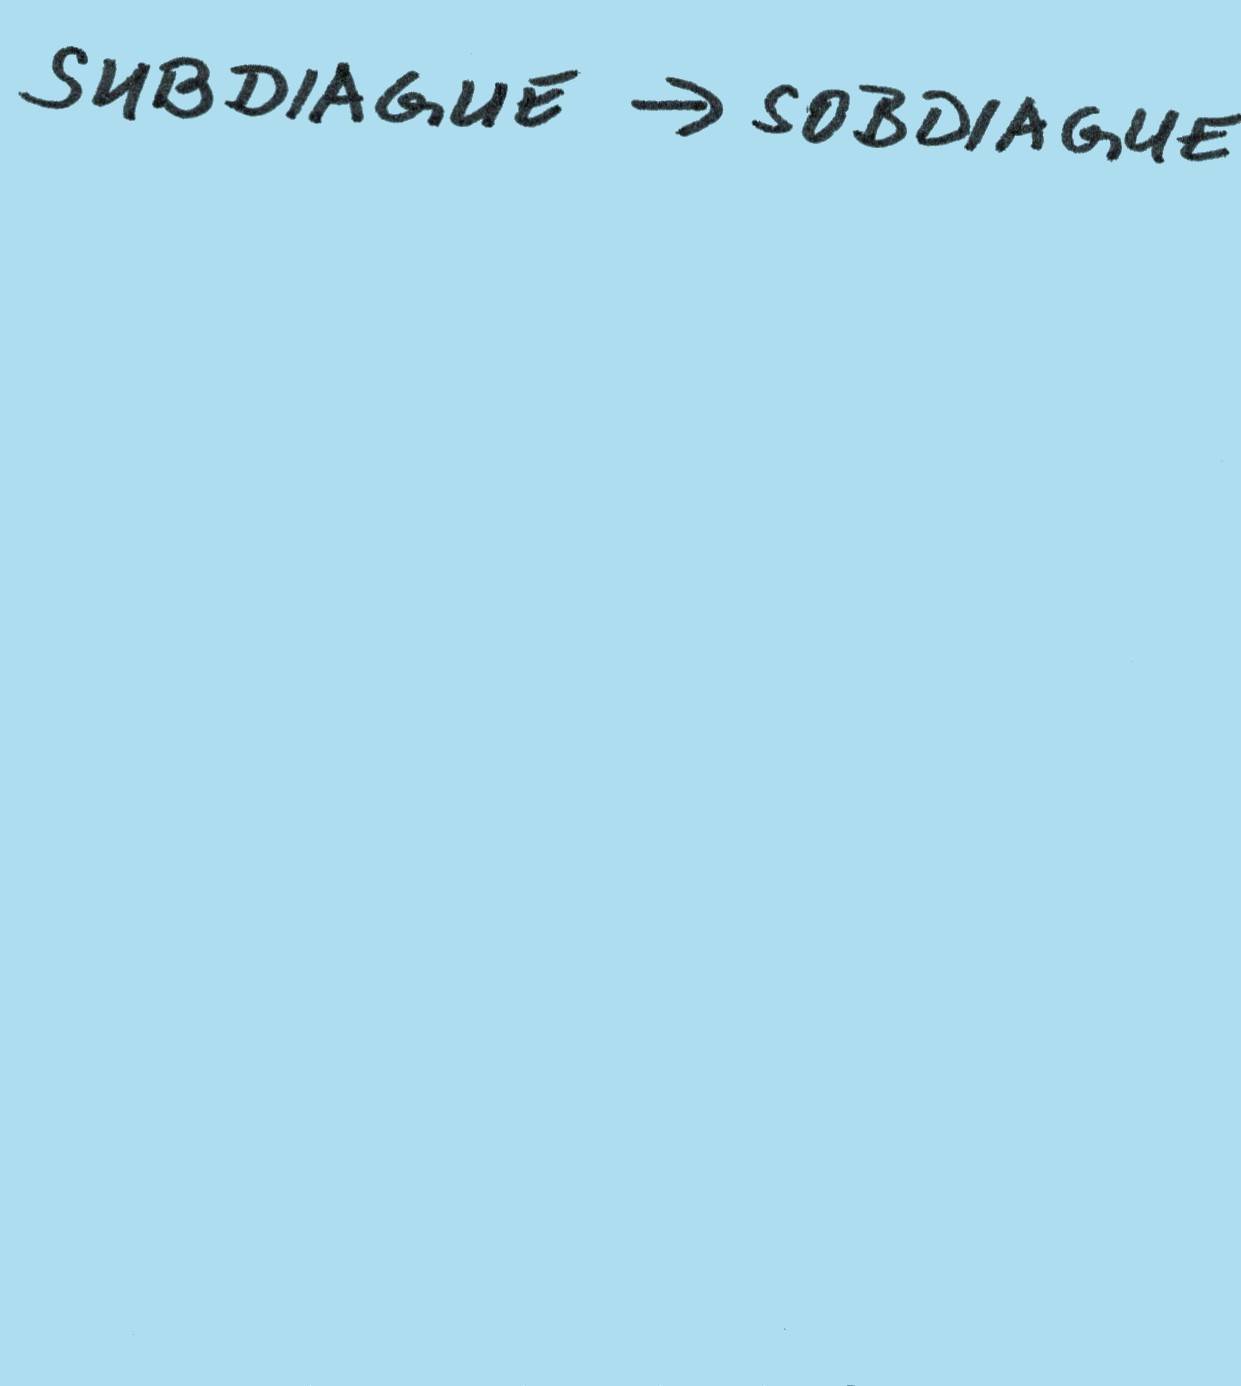 SUBDIAGUE → SOBDIAGUE